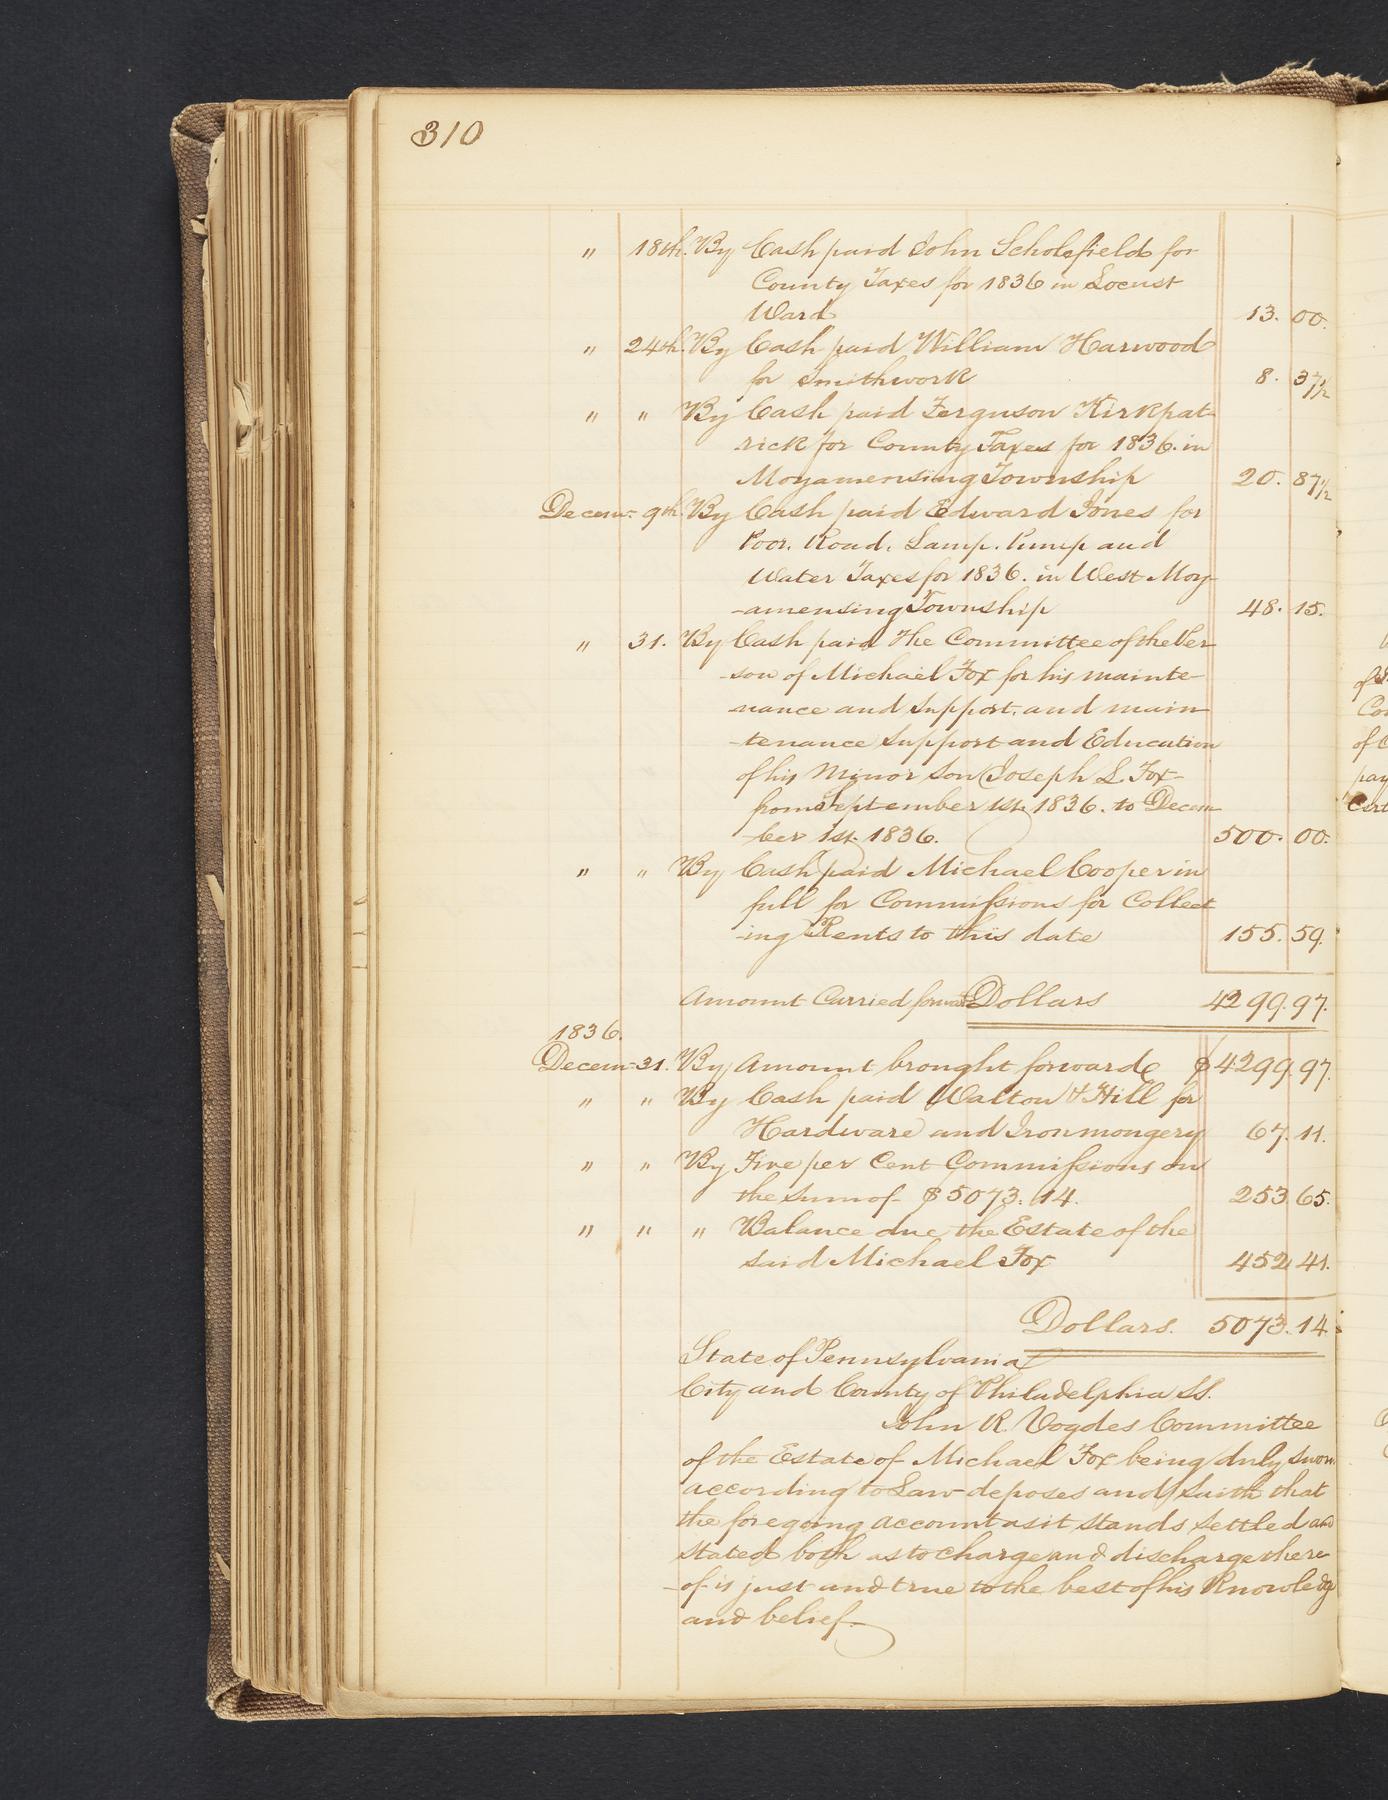 310
" 18th. By Cash paid John Scholefield for
County Taxes for 1836 in Locust
Ward 13. 00.
" 24th. By Cash paid William Harwood
for Smithwork 8. 37 1/2
" " By Cash paid Ferguson Kirkpat-
rick for County Taxes for 1836. in
Moyamensing Township 20. 87 1/2
Decem:- 9th. By Cash paid Edward Jones for
Poor. Road. Lamp. Pump and
Water Taxes for 1836. in West Moy-
-amensing Township 48. 15.
" 31. By Cash paid The Committee of the Per-
-son of Michael Fox for his mainte-
-nance and Support, and main-
-tenance Support and Education
of his Minor Son Joseph L. Fox
from September 1st. 1836. to Decem-
-ber 1st. 1836. 500. 00.
" " By Cash paid Michael Cooper in
full for Commissions for Collect
-ing Rents to this date 155. 59.
Amount Carried forward Dollars 4299.97.
1836.
Decem-31. By Amount brought forward $4299.97.
" " By Cash paid Walton & Hill for
Hardware and Ironmongery 67. 11.
" " By Five per Cent Commissions on
the Sum of $5073. 14. 253 65.
" " " Balance due the Estate of the
said Michael Fox 452 41.
Dollars. 5073. 14.
State of Pennsylvania
City and County of Philadelphia SS.
John R. Vogdes Committee
of the Estate of Michael Fox being duly sworn
according to Law deposes and saith that
the foregoing account as it stands settled and
stated both as to charge and discharge there
-of is just and true to the best of his Knowledge
and belief.
of
Co
of
pay
Cert